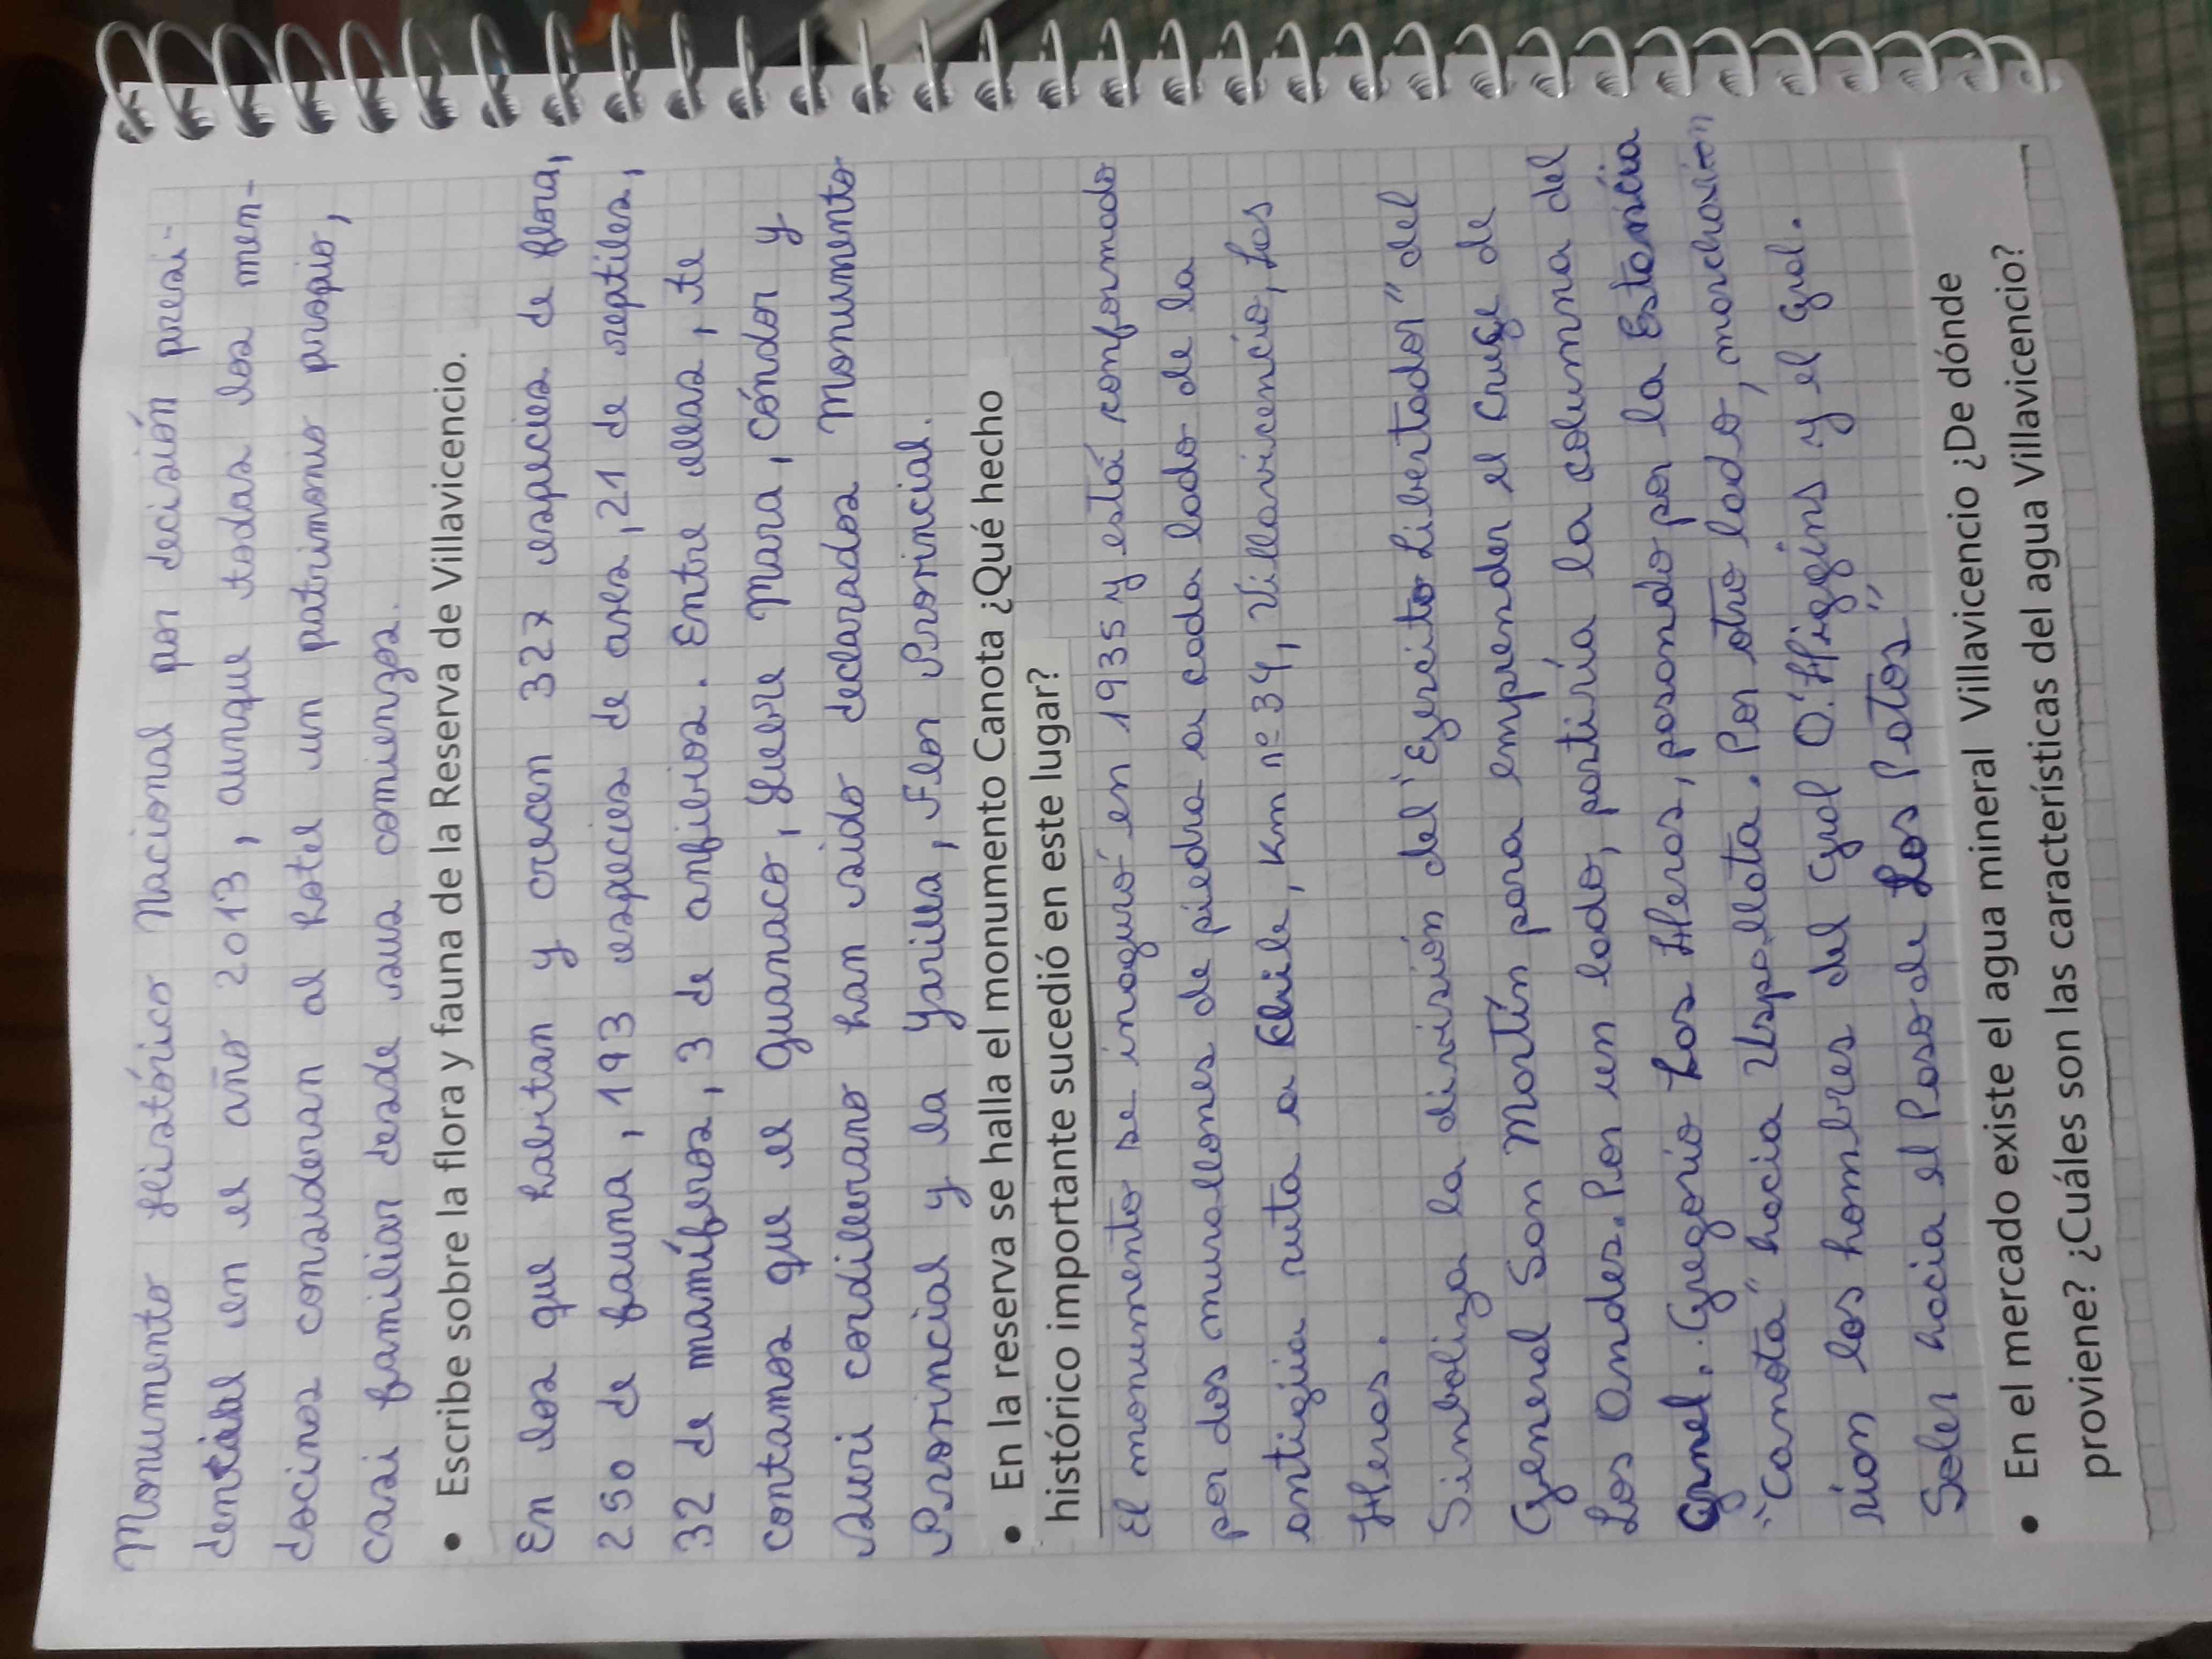 Monumento Histórico Nacional por decisión presi-
dencial en el año 2013, aunque todas los men-
docinos consideran al hotel un patrimonio propio,
casi familiar desde sus comienzos.
• Escribe sobre la flora y fauna de la Reserva de Villavicencio.
En los que habitan y crecen 327 especies de flora,
250 de fauna, 193 especies de aves, 21 de reptiles,
32 de mamíferos, 3 de anfibios. Entre ellas, te
contamos que el Guanaco, Liebre Mara, cóndor y
Suri cordillerano han sido declarados Monumento
Provincial y la Yarilla, Flor Provincial.
• En la reserva se halla el monumento Canota ¿Qué hecho
histórico importante sucedió en este lugar?
El monumento se inaguró en 1935 y está conformado
por dos murallones de piedra a cada lado de la
antigüa ruta a Chile, Km nº 34, Villavicencio, Las
Heras.
Simboliza la división del "Egercito Libertador" del
General San Martín para emprender el Cruge de
Los Andes. Por un lado, partiría la columna del
Grnel. Gregorio Las Heras, pasando por la Estancia
"Canota" hacia Uspallata. Por otro lado, marcharon
rion los hombres del Gral O'Higgins y el Gral.
Soler hacia el Paso de Los Patos"
• En el mercado existe el agua mineral Villavicencio ¿De dónde
proviene? ¿Cuáles son las características del agua Villavicencio?